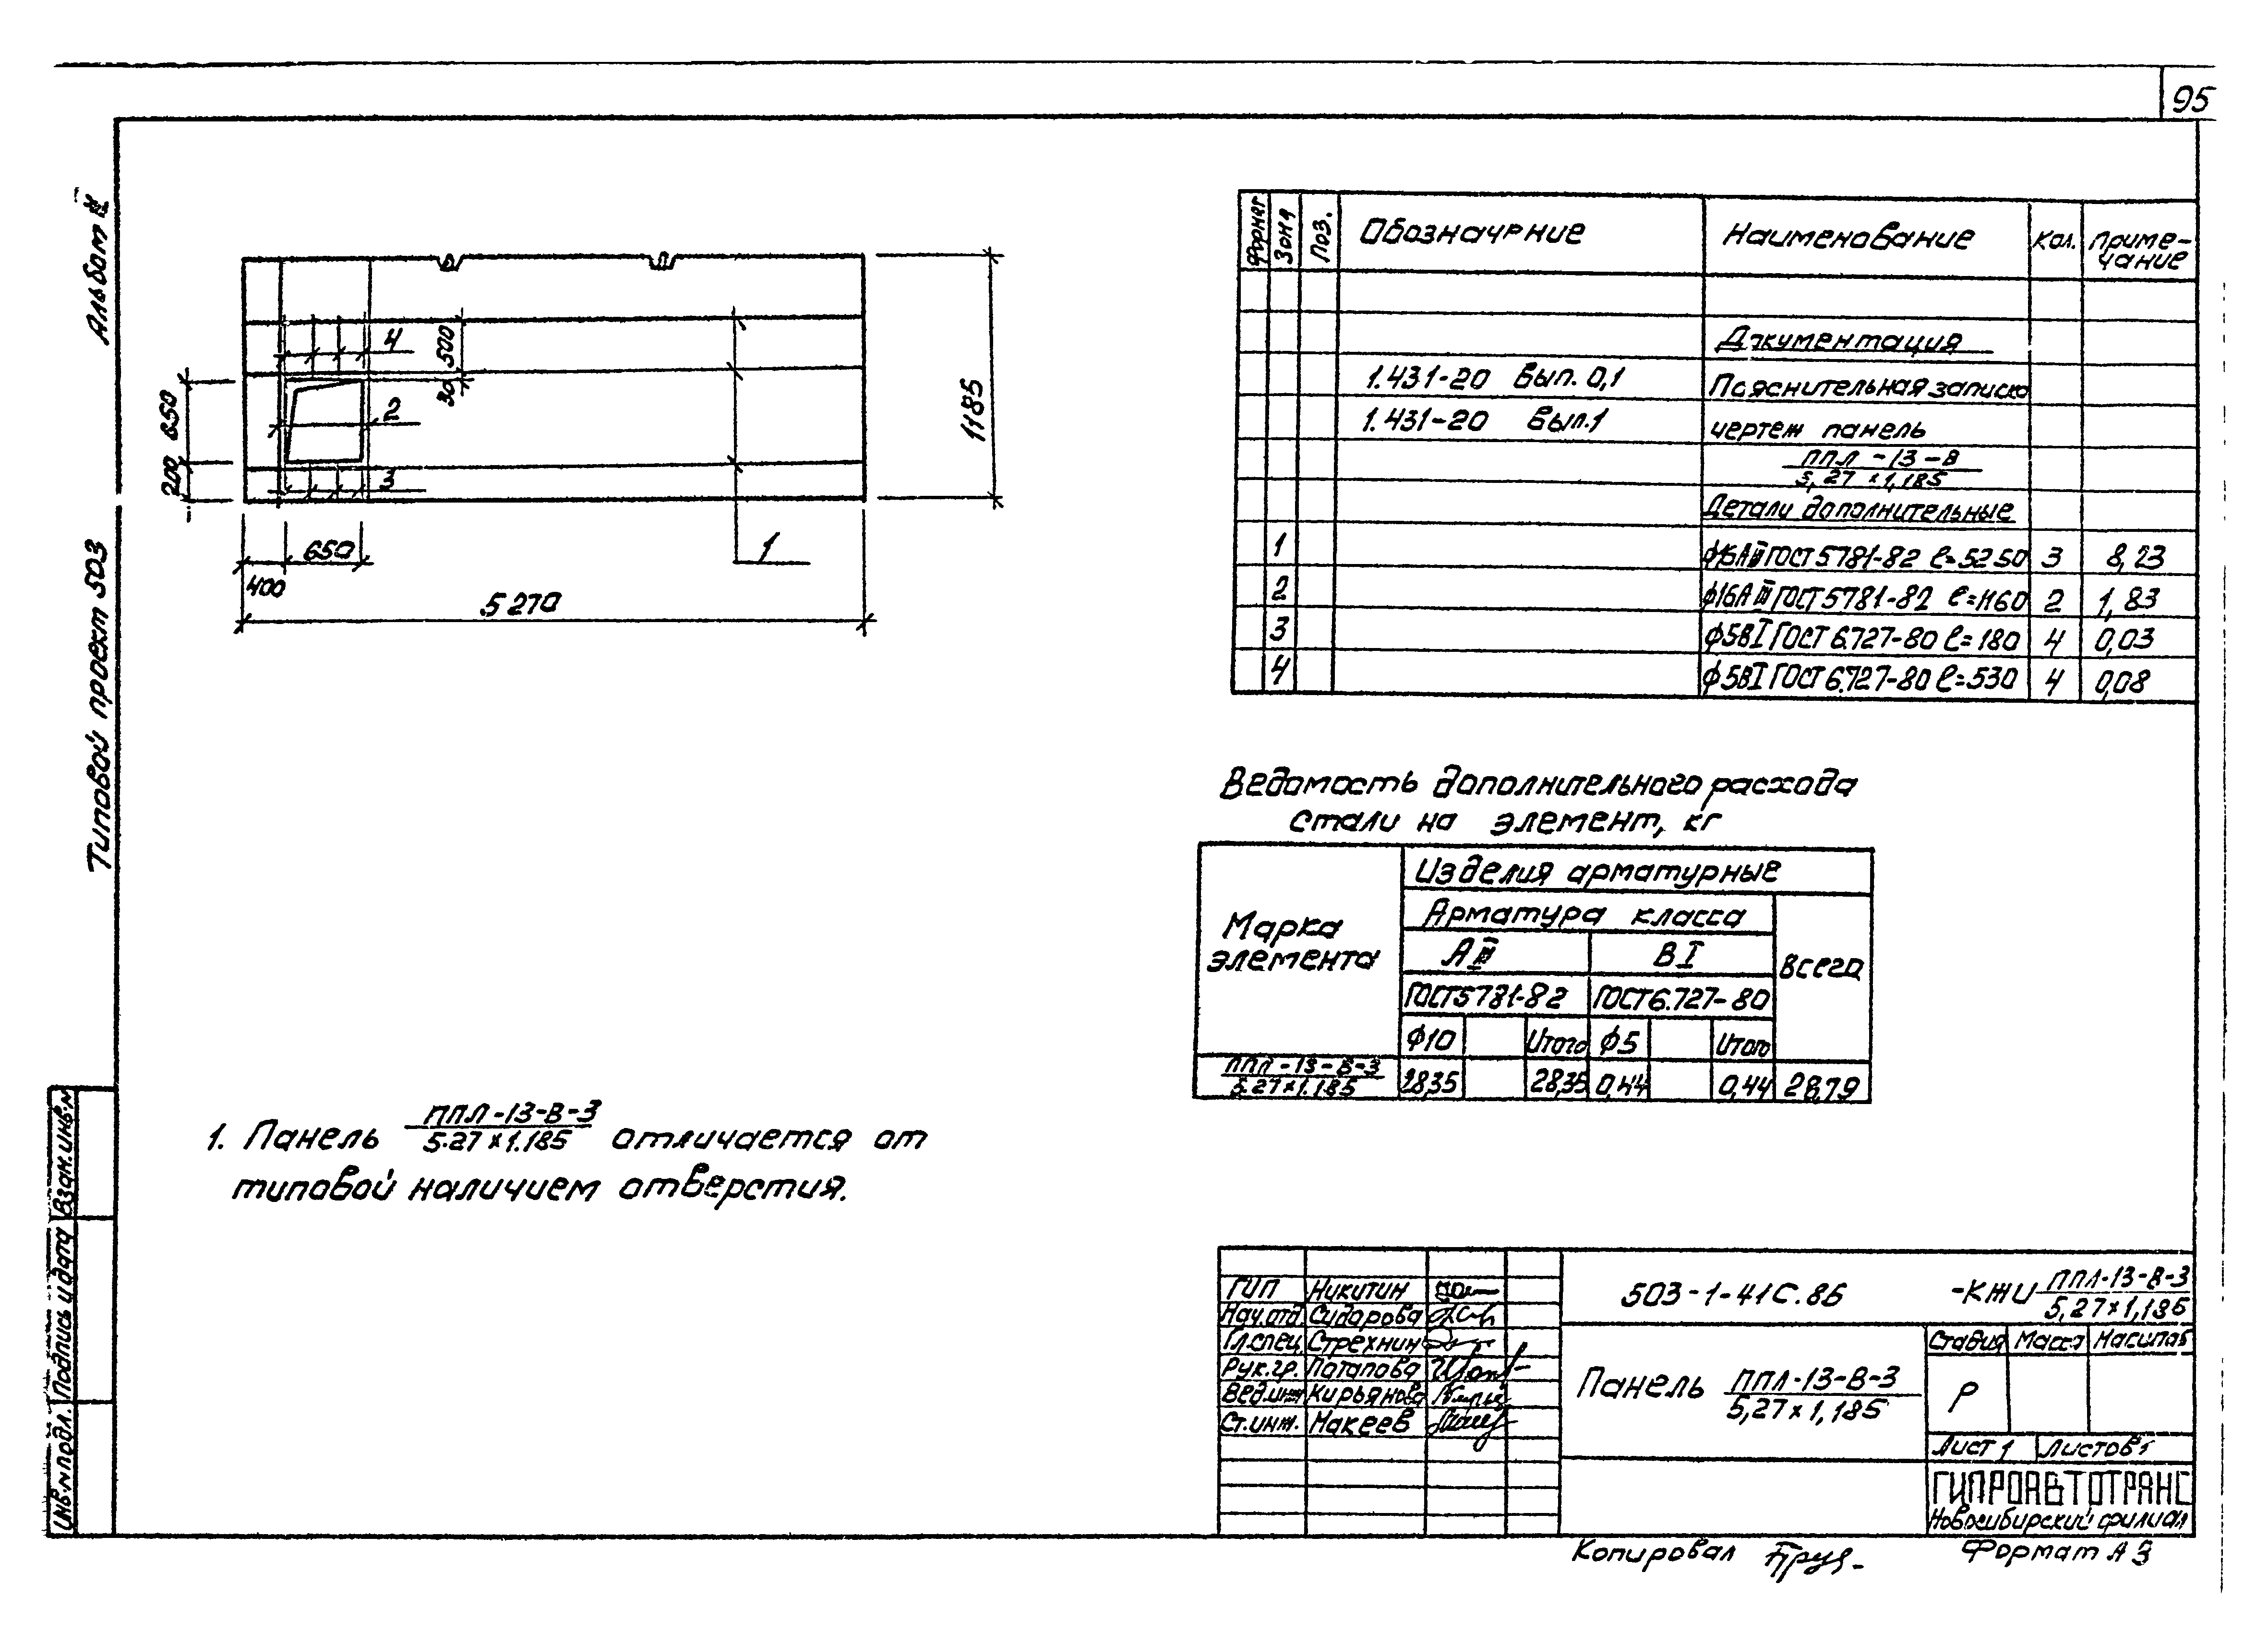 95
Альбом
Типовой проект 503
4
500
30
2
650
200
3
1185
650
1
400
5270
Формат Зона Поз. Обозначение Наименование Кол. Приме-
чание
Документация
1.431-20 Вып. 0,1 Пояснительная записка
1.431-20 Вып.1 чертеж панель
ППЛ-13-В
5,27×1,185
Детали дополнительные
1 ф16АIII ГОСТ 5781-82 ℓ=5250 3 8,23
2 ф16АIII ГОСТ 5781-82 ℓ=1160 2 1,83
3 ф5ВI ГОСТ 6.727-80 ℓ=180 4 0,03
4 ф5ВI ГОСТ 6.727-80 ℓ=530 4 0,08
Ведомость дополнительного расхода
стали на элемент, кг
Изделия арматурные
Арматура класса
Марка
элемента
АIII ВI всего
ГОСТ 5781-82 ГОСТ 6.727-80
ф10 Итого ф5 Итого
ППЛ-13-В-3
5.27×1.185 28,35 28,35 0,44 0,44 28,79
ППЛ-13-В-3
1. Панель 5.27×1.185 отличается от
типовой наличием отверстия.
Взам.инв.№
Подпись и дата
Инв.№подл.
503-1-41С.86 -КЖИ ППЛ-13-В-3
5,27×1,185
ГИП Никитин
Нач.отд. Сидорова
Гл.спец. Стрехнин
Рук.гр. Потапова
Вед.инж Кирьянова
Ст.инж. Макеев
Панель ППЛ-13-В-3
5,27×1,185
Стадия Масса Масштаб
Р
Лист 1 Листов 1
ГИПРОАВТОТРАНС
Новосибирский филиал
Копировал Формат А3